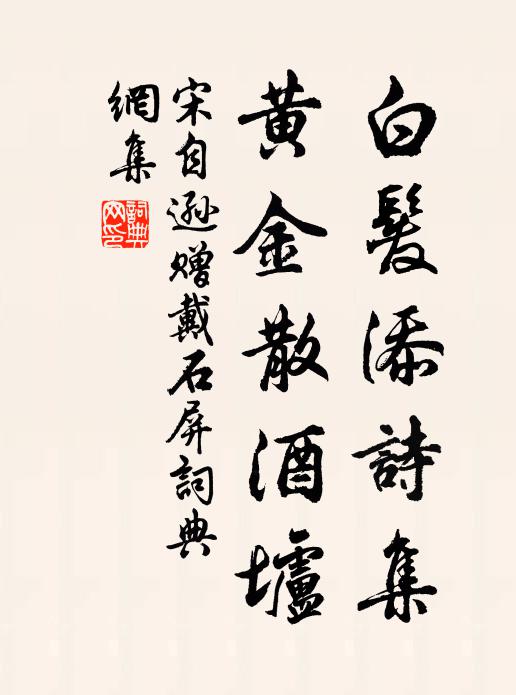 白髮添詩集
黃金散酒壚
宋自遜贈戴石屏詞典
網集
詞典
网印